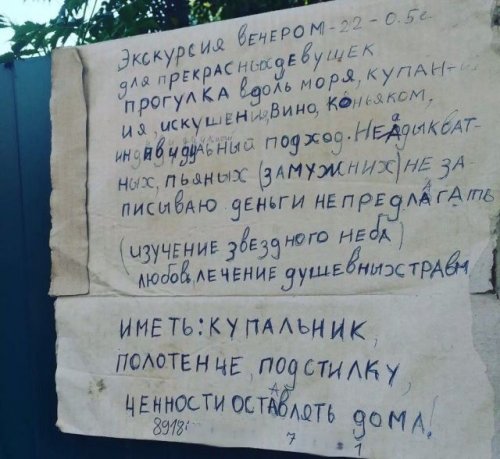 ЭКСКУРСИЯ ВЕЧЕРОМ-22-0.5с
ДЛЯ ПРЕКРАСНЫХ ДЕВУШЕК
ПРОГУЛКА ВДОЛЬ МОРЯ, КУПАН-
ИЯ, ИСКУШЕНИЯ, ВИНО, КОНЬЯКОМ,
ИНДИВИДУАЛЬНЫЙ ПОДХОД. НЕАДЫКВАТ-
НЫХ, ПЬЯНЫХ (ЗАМУЖНИХ) НЕ ЗА-
ПИСЫВАЮ. ДЕНЬГИ НЕ ПРЕДЛАГАТЬ
(ИЗУЧЕНИЕ ЗВЕЗДНОГО НЕБА)
ЛЮБОВЬ, ЛЕЧЕНИЕ ДУШЕВНЫХ ТРАВМ
ИМЕТЬ: КУПАЛЬНИК,
ПОЛОТЕНЦЕ, ПОДСТИЛКУ,
ЦЕННОСТИ ОСТАВЛЯТЬ ДОМА!
8918:
7 1